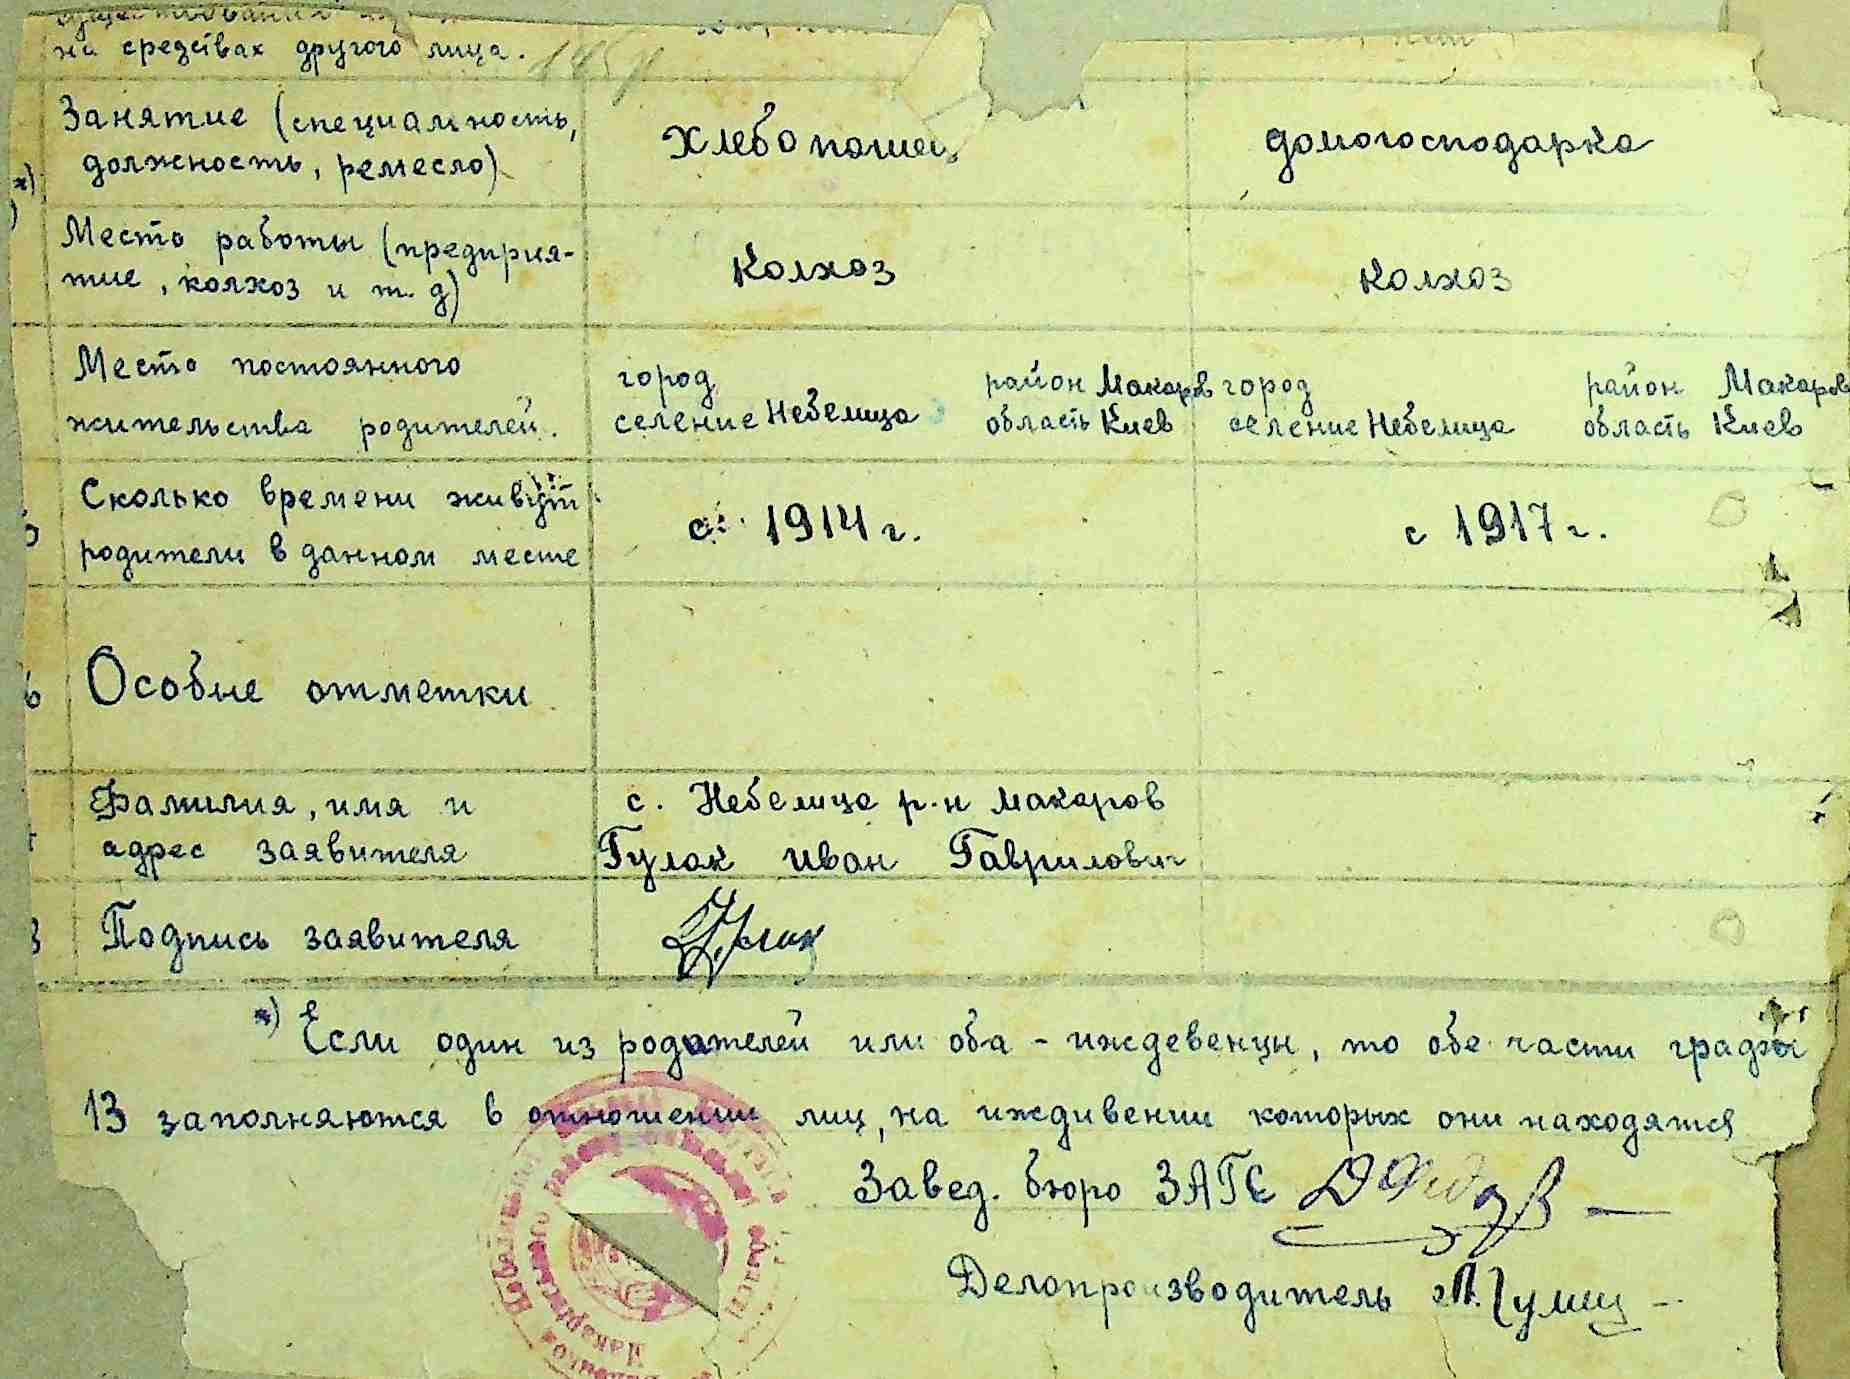 на средствах другого лица.
Занятие (специальность,
должность, ремесло)
Хлебопашец
домогосподарка
*)
Место работы (предприя-
тие, колхоз и т. д)
Колхоз
Колхоз
Место постоянного
жительства родителей.
город район Макаров
селение Небелица область Киев
город район Макаров
селение Небелица область Киев
Сколько времени живут
родители в данном месте
с 1914 г.
с 1917 г.
Особые отметки
Фамилия, имя и
адрес заявителя
с. Небелица р-н Макаров
Гулак Иван Гаврилович
Подпись заявителя
*) Если один из родителей или оба - иждевенцы, то обе части графы
13 заполняются в отношении лиц, на иждивении которых они находятся
Завед. бюро ЗАГС
Делопроизводитель